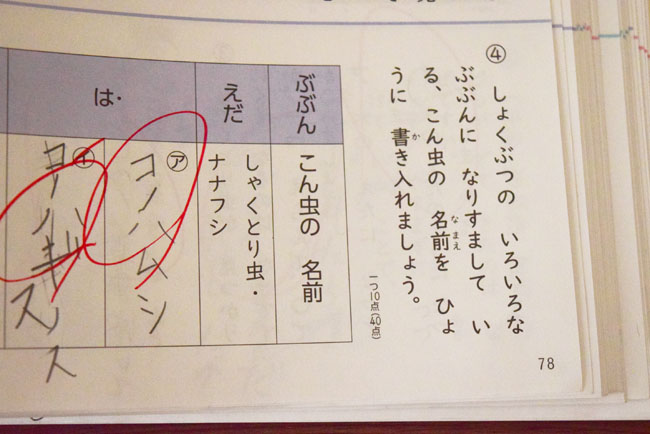 ④ しょくぶつの いろいろな
ぶぶんに なりすまして い
る、こん虫の 名前を ひょ
うに 書き入れましょう。
一つ10点(40点)
ぶぶん
こん虫の 名前
えだ
しゃくとり虫・
ナナフシ
は
㋐
コノハムシ
㋑
78